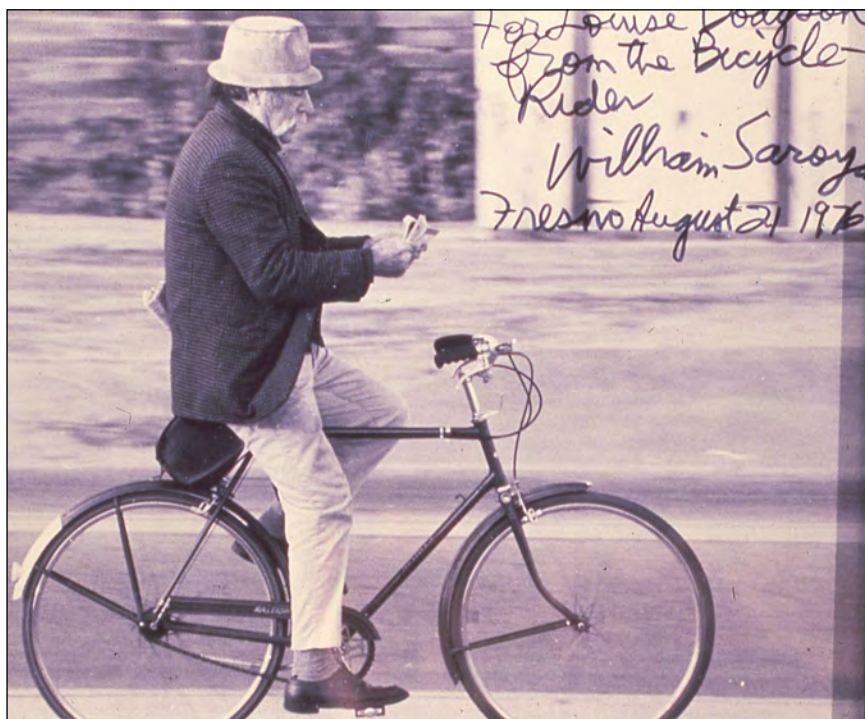 For Louise Dodgson
from the Bicycle-
Rider
William Saroya
Fresno August 21 1976
RALEIGH